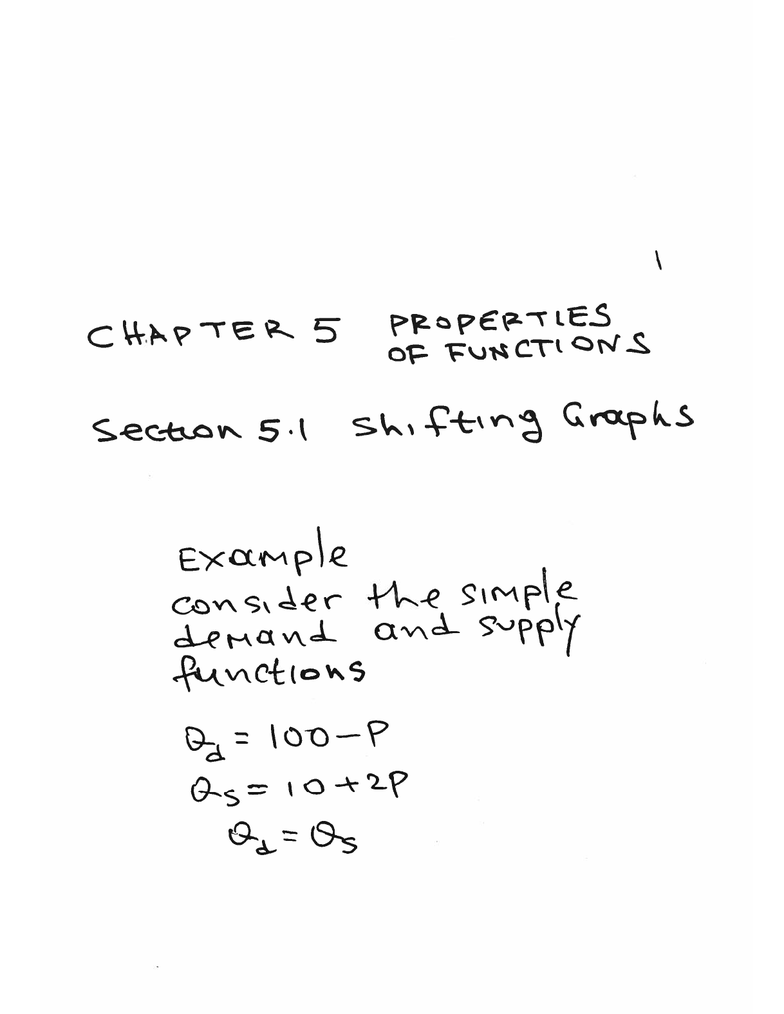 1
CHAPTER 5 PROPERTIES
OF FUNCTIONS
Section 5.1 Shifting Graphs
Example
consider the simple
demand and supply
functions
Qd = 100 - P
Qs = 10 + 2P
Qd = Qs